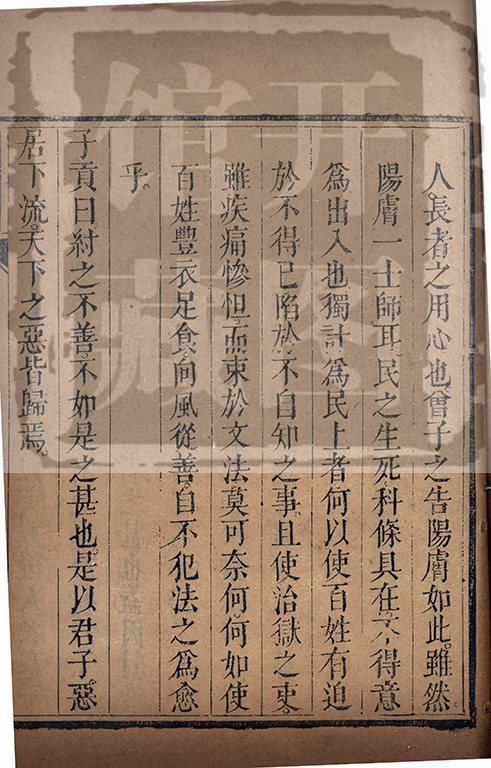 人。長者之用心也。曾子之告陽膚如此。雖然
陽膚一士師耳。民之生死。科條具在。不得意
為出入也。獨計為民上者。何以使百姓有迫
於不得已。陷於不自知之事。且使治獄之吏。
雖疾痛慘怛。而束於文法。莫可奈何。何如使
百姓豐衣足食。向風從善。自不犯法之為愈
乎。
子貢曰。紂之不善。不如是之甚也。是以君子惡
居下流。天下之惡皆歸焉。